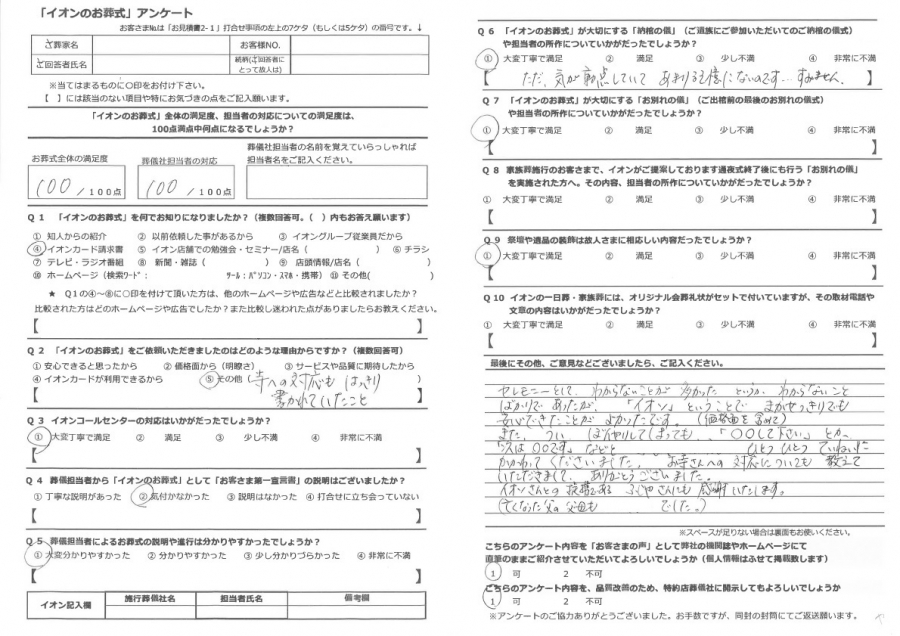 「イオンのお葬式」アンケート
お客さま№は「お見積書2-1」打合せ事項の左上の7ケタ（もしくは5ケタ）の番号です。↓
ご葬家名
お客様NO.
ご回答者氏名
続柄(ご回答者にとって故人は)
※当てはまるものに○印をお付け下さい。
【　】には該当のない項目や特にお気づきの点をご記入願います。
「イオンのお葬式」全体の満足度、担当者の対応についての満足度は、
100点満点中何点になるでしょうか？
お葬式全体の満足度
葬儀社担当者の対応
葬儀社担当者の名前を覚えていらっしゃれば
担当者名をご記入ください。
100 /100点
100 /100点
Q1 「イオンのお葬式」を何でお知りになりましたか？（複数回答可。（ ）内もお答え願います）
① 知人からの紹介 ② 以前依頼した事があるから ③ イオングループ従業員だから
④イオンカード請求書 ⑤ イオン店舗での勉強会・セミナー/店名（ ） ⑥ チラシ
⑦ テレビ・ラジオ番組 ⑧ 新聞・雑誌（ ） ⑨ 店頭情報/店名（ ）
⑩ ホームページ（検索ワード： ツール：パソコン・スマホ・携帯） ⑪ その他( )
★ Q1の④～⑩に○印を付けて頂いた方は、他のホームページや広告などと比較されましたか？
比較された方はどのホームページや広告でしたか？また比較し迷われた点がありましたらお教えください。
【 】
Q2 「イオンのお葬式」をご依頼いただきましたのはどのような理由からですか？（複数回答可）
①安心できると思ったから ② 価格面から（明瞭さ） ③ サービスや品質に期待したから
④イオンカードが利用できるから ⑤ その他（
【寺への対応も はっきり
書かれていたこと 】
Q3 イオンコールセンターの対応はいかがだったでしょうか？
① 大変丁寧で満足 ② 満足 ③ 少し不満 ④ 非常に不満
【 】
Q4 葬儀担当者から「イオンのお葬式」として「お客さま第一宣言書」の説明はございましたか？
①丁寧な説明があった ②気付かなかった ③ 説明はなかった ④ 打合せに立ち会っていない
【 】
Q5 葬儀担当者によるお葬式の説明や進行は分かりやすかったでしょうか？
① 大変分かりやすかった ② 分かりやすかった ③ 少し分かりづらかった ④ 非常に不満
【 】
イオン記入欄
施行葬儀社名
担当者氏名
備考欄
Q6 「イオンのお葬式」が大切にする「納棺の儀」（ご遺族にご参加いただいてのご納棺の儀式）
や担当者の所作についていかがだったでしょうか？
① 大変丁寧で満足 ② 満足 ③ 少し不満 ④ 非常に不満
【 ただ、気が動転していて あまり記憶にないのです…すみません。 】
Q7 「イオンのお葬式」が大切にする「お別れの儀」（ご出棺前の最後のお別れの儀式）
や担当者の所作についていかがだったでしょうか？
① 大変丁寧で満足 ② 満足 ③ 少し不満 ④ 非常に不満
【 】
Q8 家族葬施行のお客さまで、イオンがご提案しております通夜式終了後にも行う「お別れの儀」
を実施された方へ。その内容、担当者の所作についていかがだったでしょうか？
① 大変丁寧で満足 ② 満足 ③ 少し不満 ④ 非常に不満
【 】
Q9 祭壇や遺品の装飾は故人さまに相応しい内容だったでしょうか？
① 大変丁寧で満足 ② 満足 ③ 少し不満 ④ 非常に不満
【 】
Q10 イオンの一日葬・家族葬には、オリジナル会葬礼状がセットで付いていますが、その取材電話や
文章の内容はいかがだったでしょうか？
① 大変丁寧で満足 ② 満足 ③ 少し不満 ④ 非常に不満
【 】
最後にその他、ご意見などございましたら、ご記入ください。
セレモニーとして、わからないことが 多かった というか、わからないこと
ばかりで あったが、「イオン」ということで まかせっきりでも
安心できたことが よかったです。（価格面を含めて）
また、つい ぼんやりしてしまっても、「〇〇して下さい」とか、
「次は〇〇です」などと ひとつ ひとつ ていねいに
かかわってくださいました。お寺さんへの対応についても 教えて
いただきまして、ありがとうございました。
イオンさんとの 提携である ふじやさんにも 感謝いたします。
（亡くなった父の父母も でした。）
※スペースが足りない場合は裏面もお使いください。
こちらのアンケート内容を「お客さまの声」として弊社の機関誌やホームページにて
直筆のままご紹介させていただいてよろしいでしょうか（個人情報はふせて掲載致します）
1 可 2 不可
こちらのアンケート内容を、品質改善のため、特約店葬儀社に開示してもよろしいでしょうか
1 可 2 不可
※アンケートのご協力ありがとうございました。お手数ですが、同封の封筒にてご返送願います。